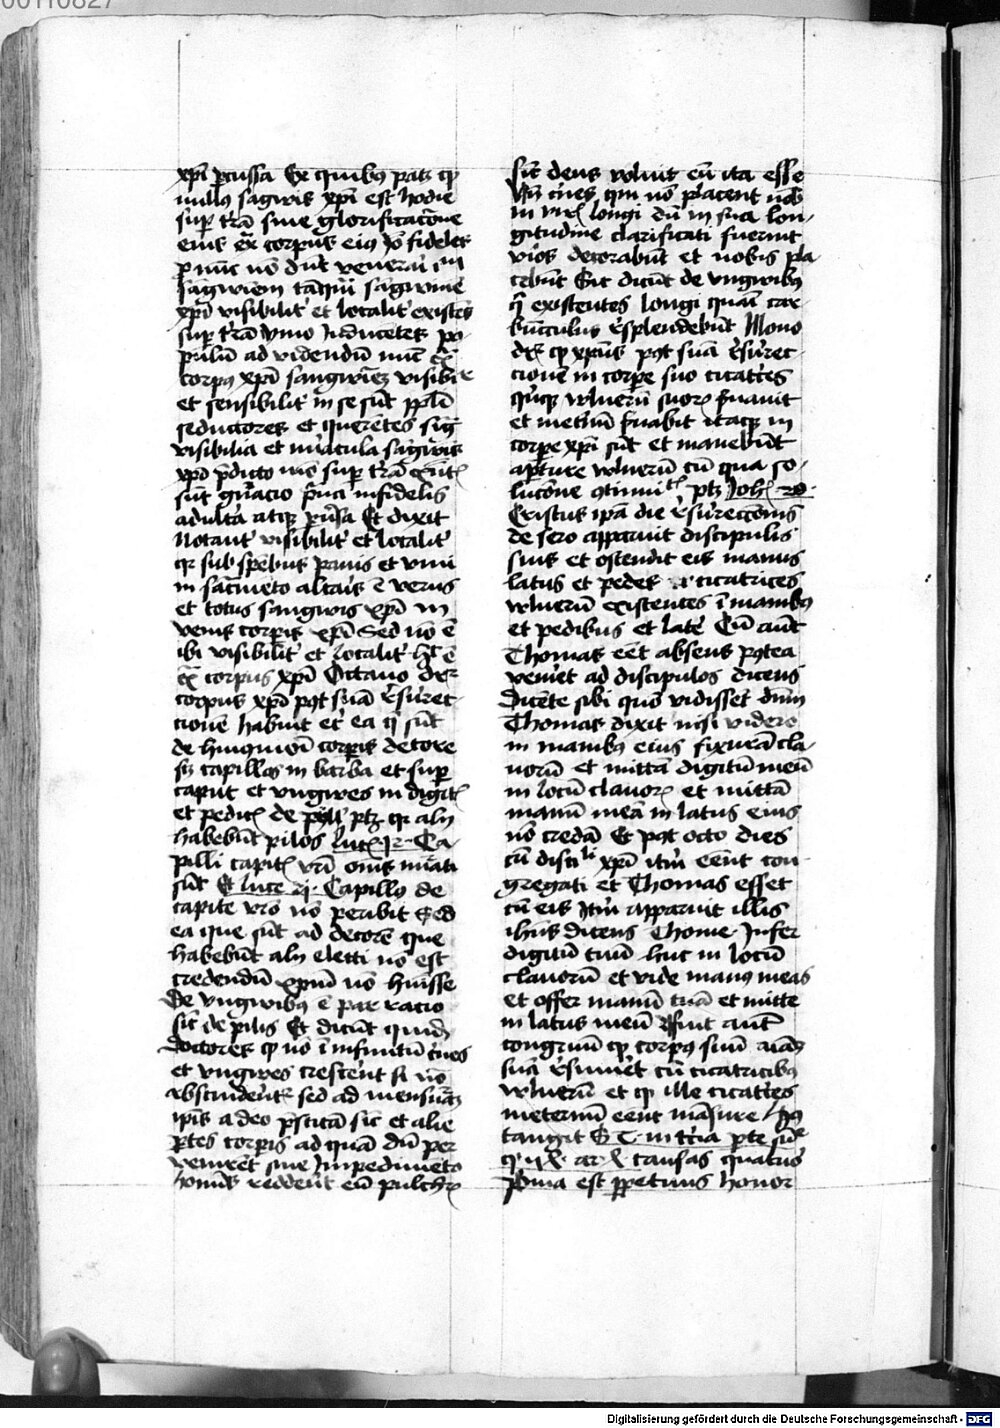 00110827
xp̄i ꝑcussa Ex quibꝰ patꝫ ꝙ
nullꝰ sagwis xp̄i est hodie
suꝑ t̄rā sine glorificac̄one
eiꝰ ex̄ corpus eiꝰ fideles
ꝑ nūc nō dn̄t venerari
sāgwinem tāqm̄ sāgwinē
xp̄i visibilit̄ et localit̄ existēs
suꝑ t̄rā ymo Inducentes po
pulū ad videndū nūc ex̄
corpꝰ xp̄i sangwinē visibile
et sensibilit̄ in se sūt
seductores et querētes siḡ
visibilia et mīacula sāgwis
xp̄o p̄dicto mō suꝑ t̄rā
sūt gn̄acio infidelis
adult̄a atqꝫ ꝑūsa Et dixit
Notant̄ visibilit̄ et localit̄
qꝛ sub spēbus panis et vini
in sac̄meto altaris ē verus
et totus sangwis xp̄i in
venis corꝑis xp̄i Sed nō ē
ibi visibilit̄ et localit̄
ex̄ corpus xp̄i Octauo
corpus xp̄i pꝰt suā r̄surec
cionē habuit et ea q̄ sūt
de corꝑis decore
sꝫ capillos in barba et suꝑ
caput et vngwes in digitꝭ
et pedicꝭ de ptꝫ qꝛ alij
habebūt pilos Luc̄ 12 Ca
pilli capitꝭ vr̄i om̄s nūati
sūt Et luce 21 Capillꝰ de
capite vr̄o nō peribit Sed
ea que sūt ad decorē que
habebūt alij electi nō est
credendū xpm̄ nō huisse
De vngwibꝰ ē par racio
sic̄ de pilis Et dicūt quidā
doctores ꝙ nō ī infinitū c̄nes
et vngwes crescent si nō
abscindent̄ sed ad mensurā
ip̄is a deo p̄stitā sic̄ et alie
ꝑtes corꝑis ad quā dū per
venirēt sine Impedimēto
reddent eū pulchrꝭ
sic̄ deus voluit eū ita esse
Vn̄ c̄nes qui nō placent nob̄
in longi dū in sua lon
gitudine clarificati fuerint
viros decorabūt et nobis pla
cebūt Sic dicūt de vngwibꝰ
q̄ existentes longi quasi car
būculus r̄splendebūt Nono
ꝙ xpūs pꝰt suā r̄surec
cionē in corꝑe suo cicat̄ces
qn̄qꝫ vlnerū suoꝝ s̄uauit
et in et̄nū s̄uabit itaqꝫ in
corꝑe xp̄i sūt et manebūt
aꝑture vlnerū cū qua so
lucōne ptꝫ Joh̄ 20
Cristus ipā die r̄surecc̄onis
de sero apparuit discipulis
suis et ostendit eis manus
latus et pedes cicatrices
vlnerū existentes ī manibꝰ
et pedibus et late Cū aūt
Thomas eēt absens pꝰtea
venit ad discipulos dicens
Dicēte sibi quō vidisset dn̄m
Thomas dixit nisi videro
in manibꝰ eius fixurā cla
uorū et mittā digitū meū
in locū clauoꝝ et mittā
manū meā in latus eius
nō credā Et pꝰt octo dies
cū discīli xp̄i it̄m eēnt con
gregati et Thomas esset
cū eis It̄m apparuit illis
ihūs dicens Thome Infer
digitū tuū huc in locū
clauorū et vide manꝰ meas
et offer manū tuā et mitte
in latus meū Fuit aūt
congruū ꝙ corpꝰ suū
suā r̄sumēt cū cicatricibꝰ
vlnerū et ꝙ ille cicat̄ces
inet̄nū eēnt māsure
tangit S T in t̄cia ꝑte
causas quatuor
Prima est ꝑpetuus honor
Digitalisierung gefördert durch die Deutsche Forschungsgemeinschaft - DFG